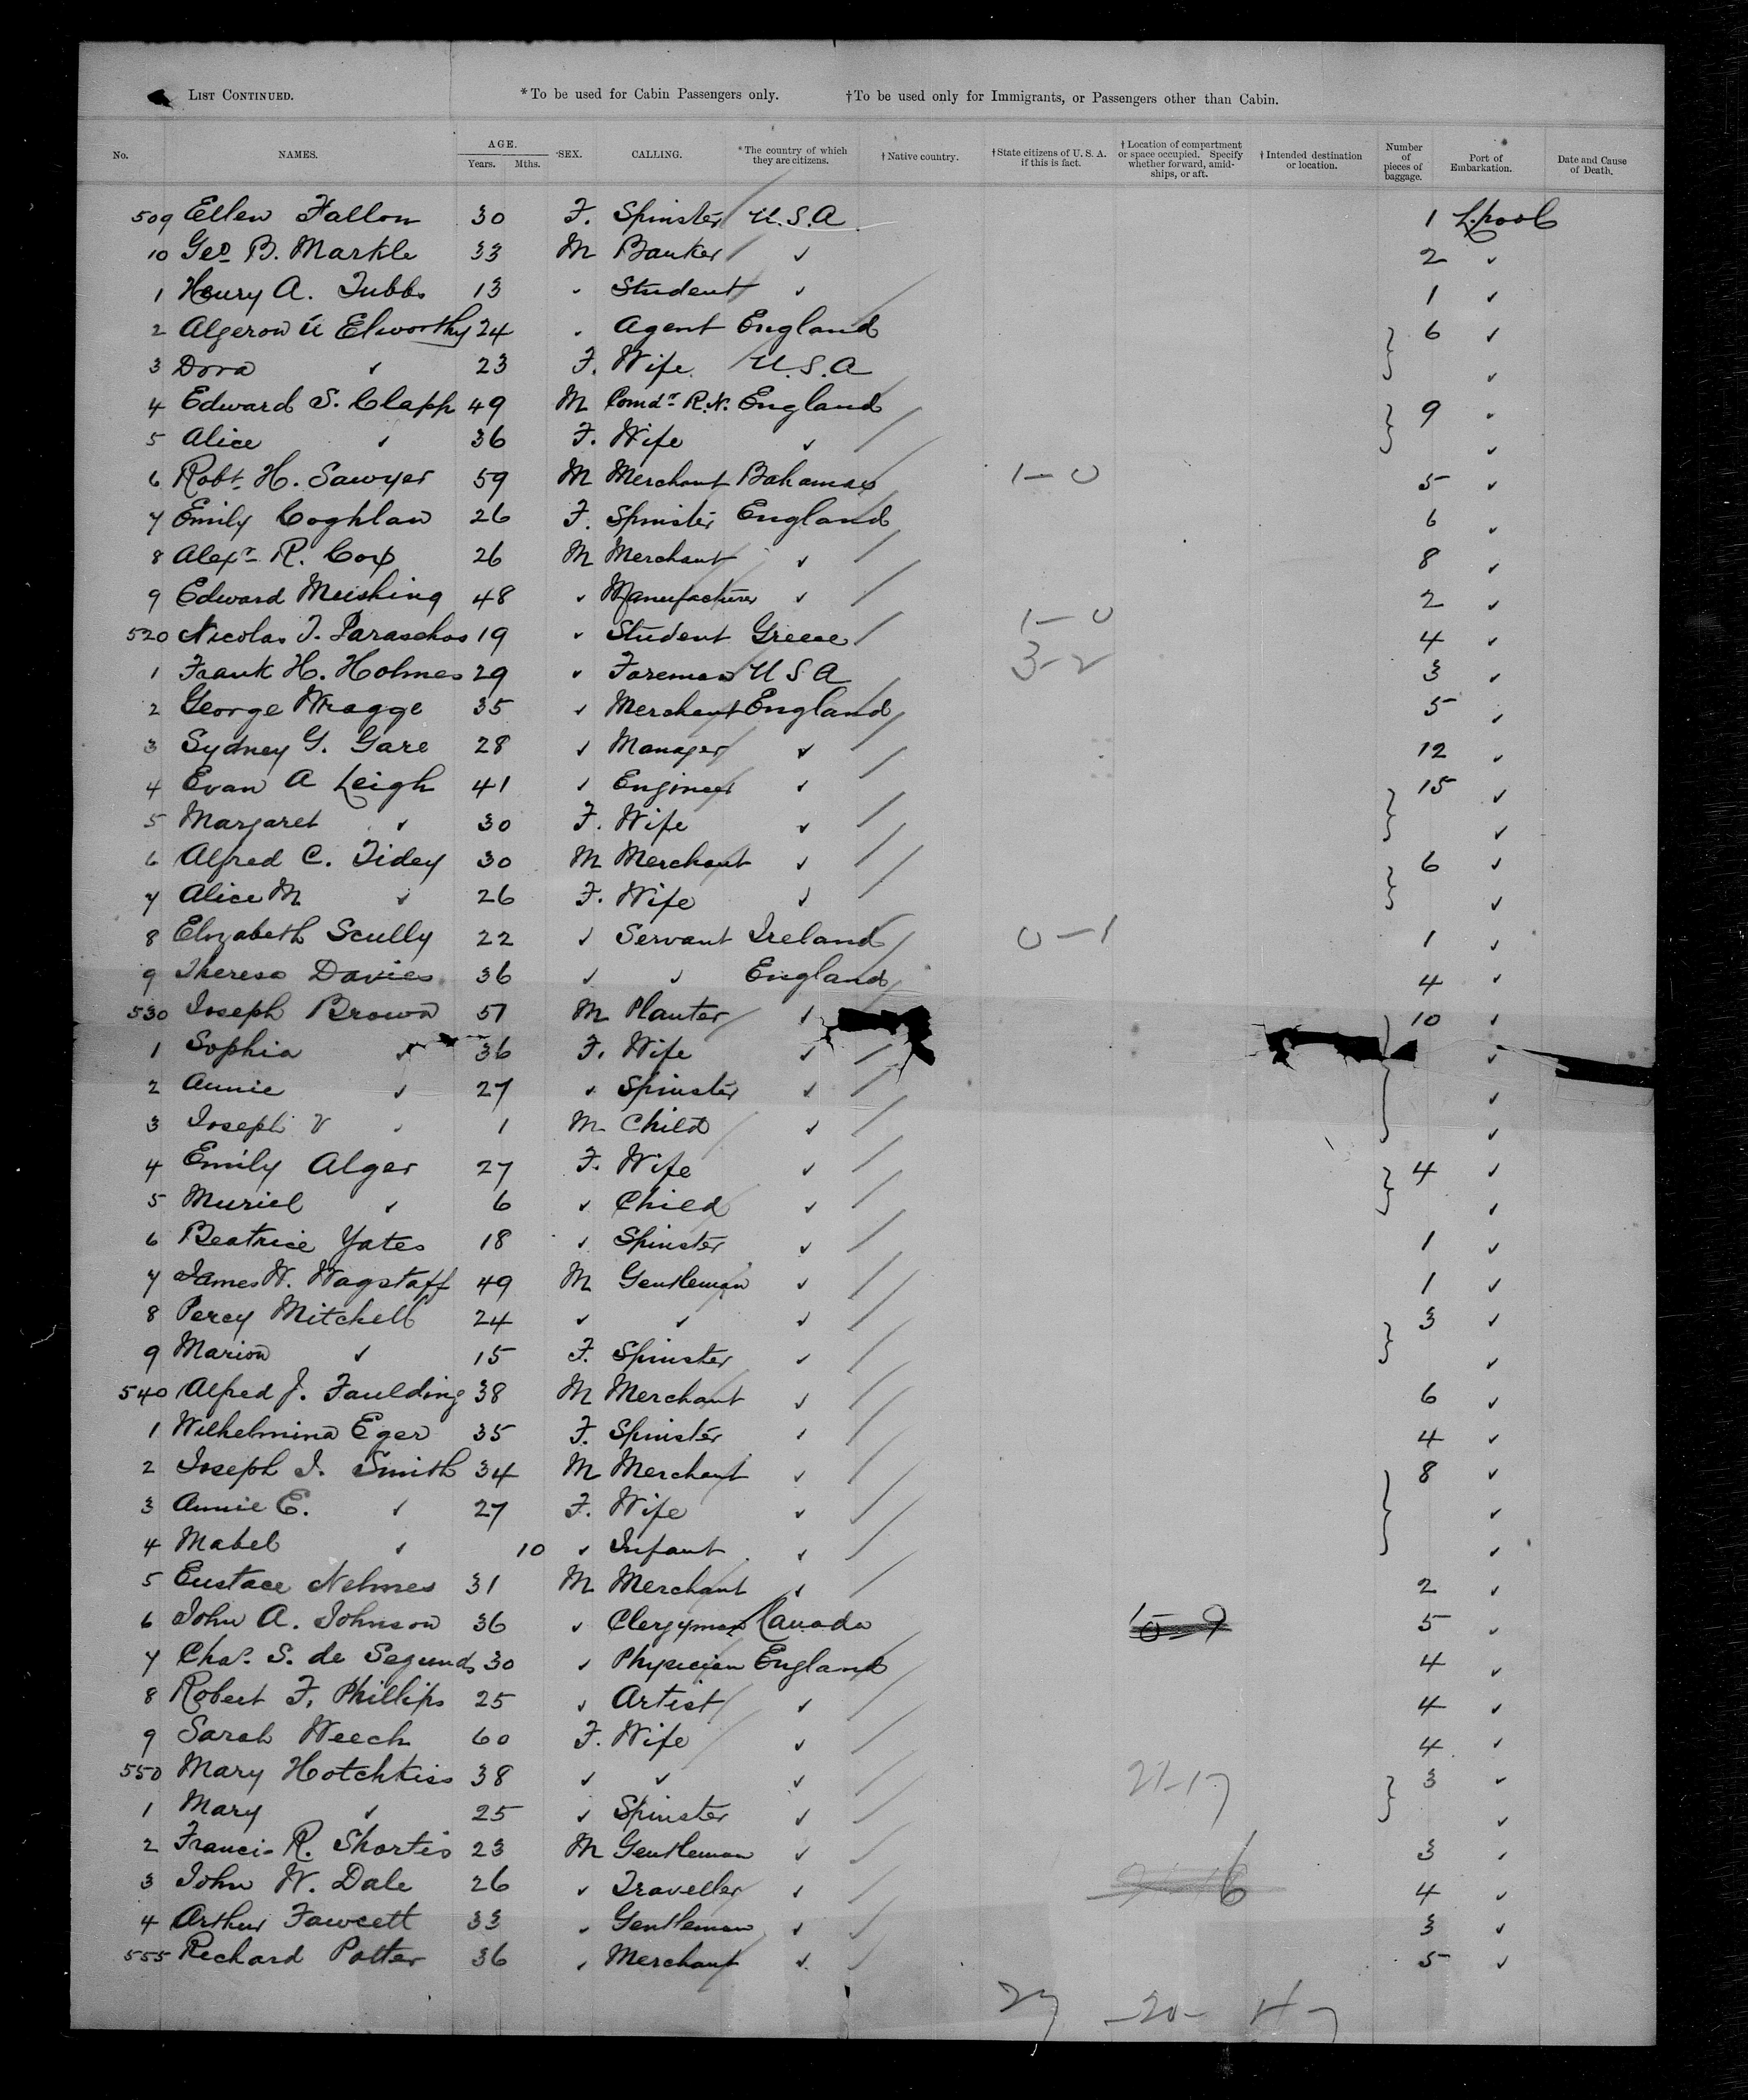 LIST CONTINUED. *To be used for Cabin Passengers only. †To be used only for Immigrants, or Passengers other than Cabin.
No. NAMES. AGE. Years. Mths. SEX. CALLING. *The country of which they are citizens. †Native country. †State citizens of U. S. A. if this is fact. †Location of compartment or space occupied. Specify whether forward, amidships, or aft. †Intended destination or location. Number of pieces of baggage. Port of Embarkation. Date and Cause of Death.
509 Ellen Fallon 30 F. Spinster U.S.A 1 L.pool
10 Geo B. Markle 33 M Banker ✓ 2 ✓
1 Henry A. Tubbs 13 ✓ Student ✓ 1 ✓
2 Algeron Elworthy 24 ✓ Agent England 6 ✓
3 Dora ✓ 23 F. Wife U.S.A ✓
4 Edward S. Clapp 49 M Comdr R.N. England 9 ✓
5 Alice ✓ 36 F. Wife ✓ ✓
6 Robt. H. Sawyer 59 M Merchant Bahamas 1-0 5 ✓
7 Emily Coghlan 26 F. Spinster England 6 ✓
8 Alexr R. Cox 26 M Merchant ✓ 8 ✓
9 Edward 48 ✓ Manufacturer ✓ 2 ✓
520 Nicolas J. Paraschos 19 ✓ Student Greece 1-0 4 ✓
1 Frank H. Holmes 29 ✓ Foreman U S A 3-2 3 ✓
2 George Wragge 35 ✓ Merchant England 5 ✓
3 Sydney G. Gare 28 ✓ Manager ✓ 12 ✓
4 Evan A Leigh 41 ✓ Engineer ✓ 15 ✓
5 Margaret ✓ 30 F. Wife ✓ ✓
6 Alfred C. Tidey 30 M Merchant ✓ 6 ✓
7 Alice M ✓ 26 F. Wife ✓ ✓
8 Elizabeth Scully 22 ✓ Servant Ireland 0-1 1 ✓
9 Theresa Davies 36 ✓ ✓ England 4 ✓
530 Joseph Brown 57 M Planter ✓ 10 ✓
1 Sophia ✓ 36 F. Wife ✓ ✓
2 Annie ✓ 27 ✓ Spinster ✓ ✓
3 Joseph V ✓ 1 M Child ✓ ✓
4 Emily Alger 27 F. Wife ✓ 4 ✓
5 Muriel ✓ 6 ✓ Child ✓ ✓
6 Beatrice Yates 18 ✓ Spinster ✓ 1 ✓
7 James W. Wagstaff 49 M Gentleman ✓ 1 ✓
8 Percy Mitchell 24 ✓ ✓ ✓ 3 ✓
9 Marion ✓ 15 F. Spinster ✓ ✓
540 Alfred J. Faulding 38 M Merchant ✓ 6 ✓
1 Wilhelmina Eger 35 F. Spinster ✓ 4 ✓
2 Joseph J. Smith 34 M Merchant ✓ 8 ✓
3 Annie E. ✓ 27 F. Wife ✓ ✓
4 Mabel ✓ 10 ✓ Infant ✓ ✓
5 Eustace Nelmes 31 M Merchant ✓ 2 ✓
6 John A. Johnson 36 ✓ Clergyman Canada 5 ✓
7 Chas. S. de Segundo 30 ✓ Physician England 4 ✓
8 Robert F. Phillips 25 ✓ Artist ✓ 4 ✓
9 Sarah Weech 60 F. Wife ✓ 4 ✓
550 Mary Hotchkiss 38 ✓ ✓ ✓ 21-17 3 ✓
1 Mary ✓ 25 ✓ Spinster ✓ ✓
2 Francis R. Shortis 23 M Gentleman ✓ 3 ✓
3 John W. Dale 26 ✓ Traveller ✓ 4 ✓
4 Arthur Fawcett 33 ✓ Gentleman ✓ 3 ✓
555 Richard Potter 36 ✓ Merchant ✓ 5 ✓